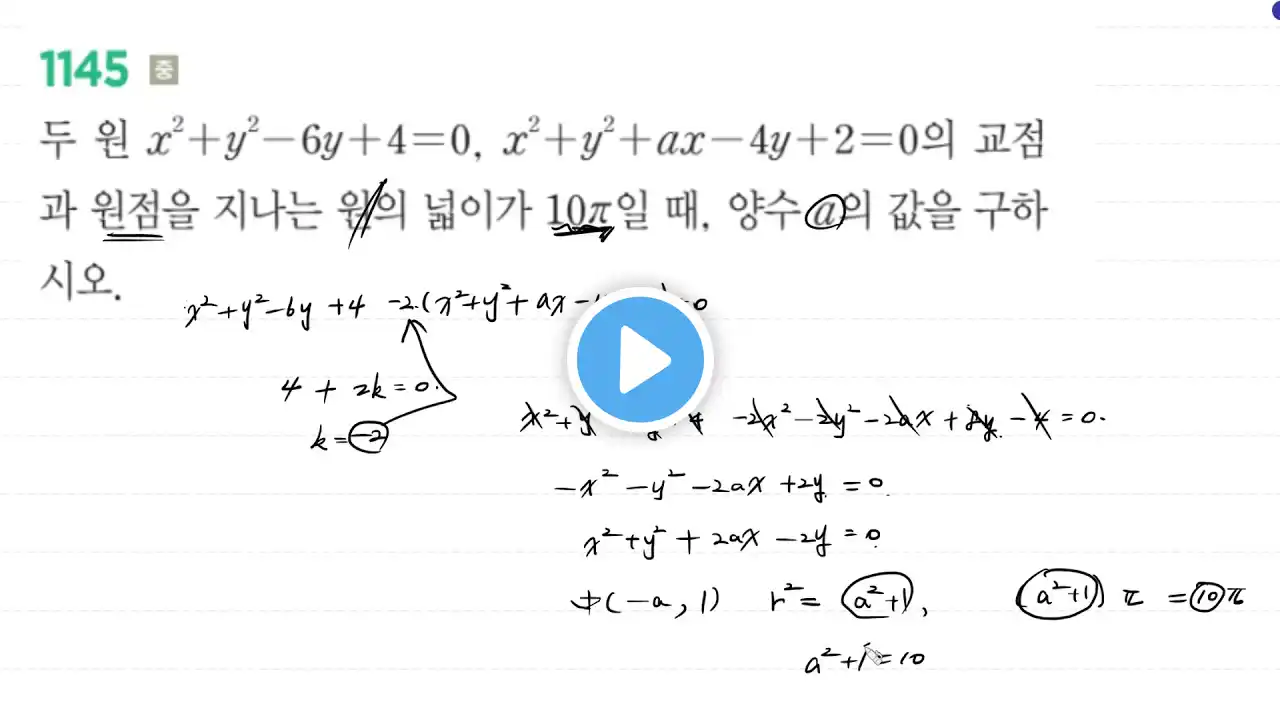 1145 중
두 원 x²+y²−6y+4=0, x²+y²+ax−4y+2=0의 교점
과 원점을 지나는 원의 넓이가 10π일 때, 양수 a의 값을 구하
시오.
x²+y²−6y +4 −2·(x²+y²+ax− =0
4 + 2k=0.
k=−2
x²+y −2x²−2y²−2ax+ y −4=0.
−x²−y²−2ax+2y=0.
x²+y²+2ax−2y=0.
中(−a, 1) r²= a²+1, (a²+1)π =10π
a²+1=10